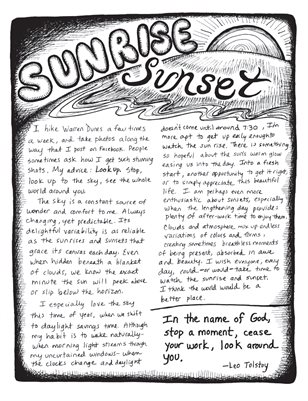 SUNRISE
Sunset
I hike Warren Dunes a few times
a week, and take photos along the
way that I post on Facebook. People
sometimes ask how I get such stunning
shots. My advice: Look up. Stop,
look up to the sky, see the whole
world around you.
The sky is a constant source of
wonder and comfort to me. Always
changing, yet predictable. Its
delightful variability is as reliable
as the sunrises and sunsets that
grace its canvas each day. Even
when hidden beneath a blanket
of clouds, we know the exact
minute the sun will peek above
or slip below the horizon.
I especially love the sky
this time of year, when we shift
to daylight savings time. Although
my habit is to wake naturally-
when morning light streams through
my uncurtained windows- when
the clocks change and daylight
doesn't come until around 7:30, I'm
more apt to get up early enough to
watch the sun rise. There is something
so hopeful about the sun's warm glow
easing us into the day. Into a fresh
start, another opportunity to get it right
or to simply appreciate this beautiful
life. I am perhaps even more
enthusiastic about sunsets, especially
when the lengthening day provides
plenty of after-work time to enjoy them.
Clouds and atmosphere mix up endless
variations of colors and forms -
creating sometimes breathless moments
of being present, absorbed, in awe
and beauty. I wish everyone, every
day, could-or would-take time to
watch the sunrise and sunset.
I think the world would be a
better place.
In the name of God,
stop a moment, cease
your work, look around
you.
-Leo Tolstoy